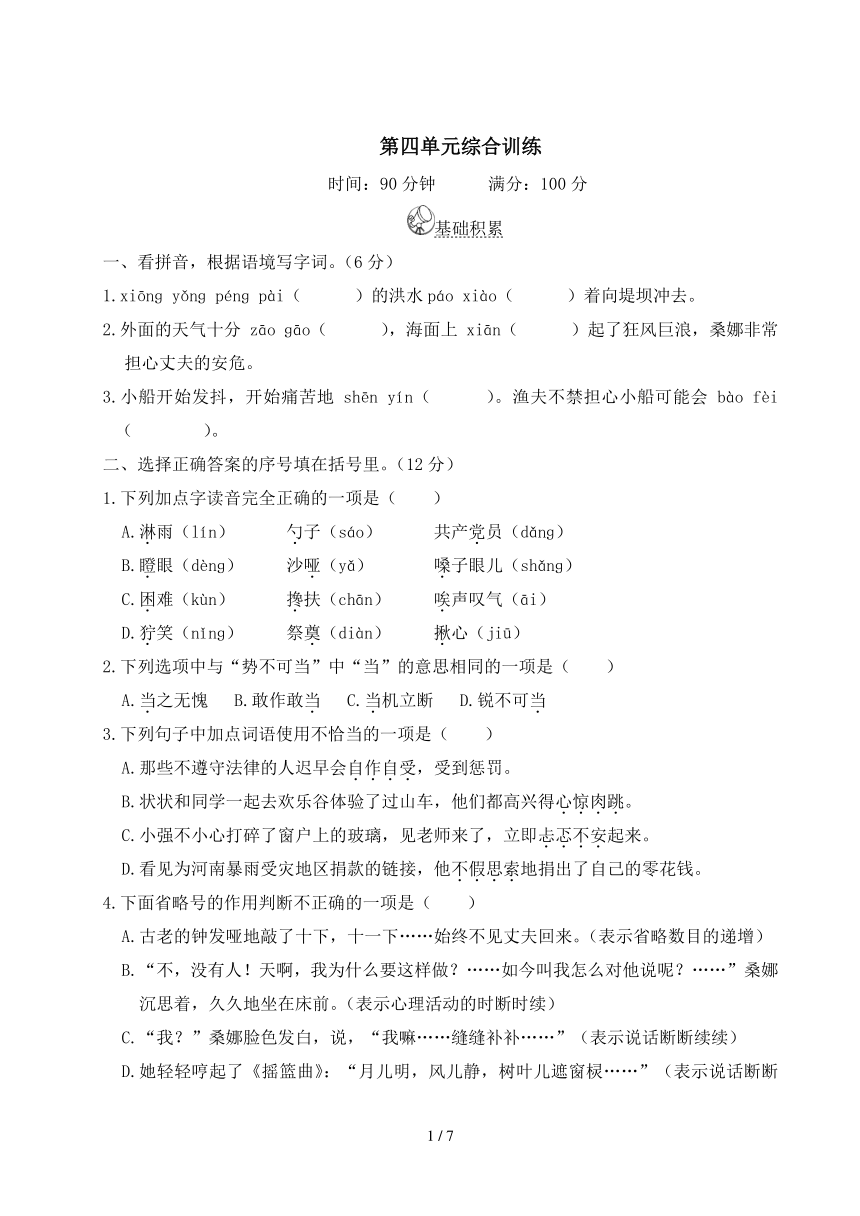 第四单元综合训练
时间：90 分钟 满分：100 分
基础积累
一、看拼音，根据语境写字词。（6 分）
1.xiōng yǒng péng pài（ ）的洪水 páo xiào（ ）着向堤坝冲去。
2.外面的天气十分 zāo gāo（ ），海面上 xiān（ ）起了狂风巨浪，桑娜非常
担心丈夫的安危。
3.小船开始发抖，开始痛苦地 shēn yín（ ）。渔夫不禁担心小船可能会 bào fèi
（ ）。
二、选择正确答案的序号填在括号里。（12 分）
1.下列加点字读音完全正确的一项是（ ）
A.淋雨（lín） 勺子（sáo） 共产党员（dǎng）
B.瞪眼（dèng） 沙哑（yǎ） 嗓子眼儿（shǎng）
C.困难（kùn） 搀扶（chān） 唉声叹气（āi）
D.狞笑（nǐng） 祭奠（diàn） 揪心（jiū）
2.下列选项中与“势不可当”中“当”的意思相同的一项是（ ）
A.当之无愧 B.敢作敢当 C.当机立断 D.锐不可当
3.下列句子中加点词语使用不恰当的一项是（ ）
A.那些不遵守法律的人迟早会自作自受，受到惩罚。
B.状状和同学一起去欢乐谷体验了过山车，他们都高兴得心惊肉跳。
C.小强不小心打碎了窗户上的玻璃，见老师来了，立即忐忑不安起来。
D.看见为河南暴雨受灾地区捐款的链接，他不假思索地捐出了自己的零花钱。
4.下面省略号的作用判断不正确的一项是（ ）
A.古老的钟发哑地敲了十下，十一下……始终不见丈夫回来。（表示省略数目的递增）
B.“不，没有人！天啊，我为什么要这样做？……如今叫我怎么对他说呢？……”桑娜
沉思着，久久地坐在床前。（表示心理活动的时断时续）
C.“我？”桑娜脸色发白，说，“我嘛……缝缝补补……”（表示说话断断续续）
D.她轻轻哼起了《摇篮曲》：“月儿明，风儿静，树叶儿遮窗棂……”（表示说话断断
1 / 7